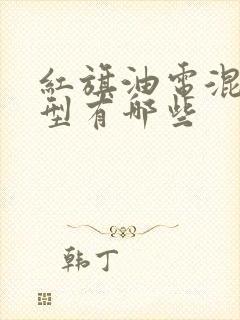 红旗油电混
型有哪些
韩丁